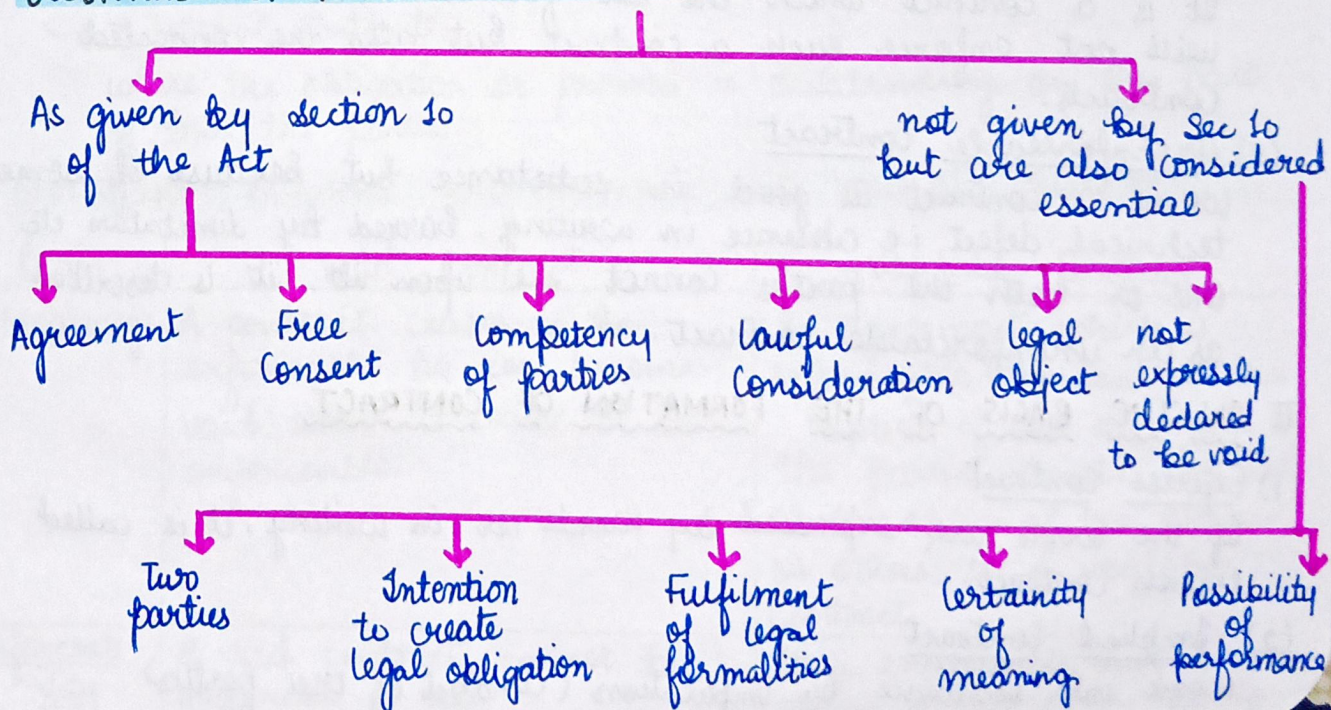 As given by section 10
of the Act
not given by Sec 10
but are also considered
essential
Agreement
Free
Consent
Competency
of parties
lawful
consideration
legal
object
not
expressly
declared
to be void
Two
parties
Intention
to create
legal obligation
Fulfilment
of legal
formalities
Certainity
of
meaning.
Possibility
of
performance